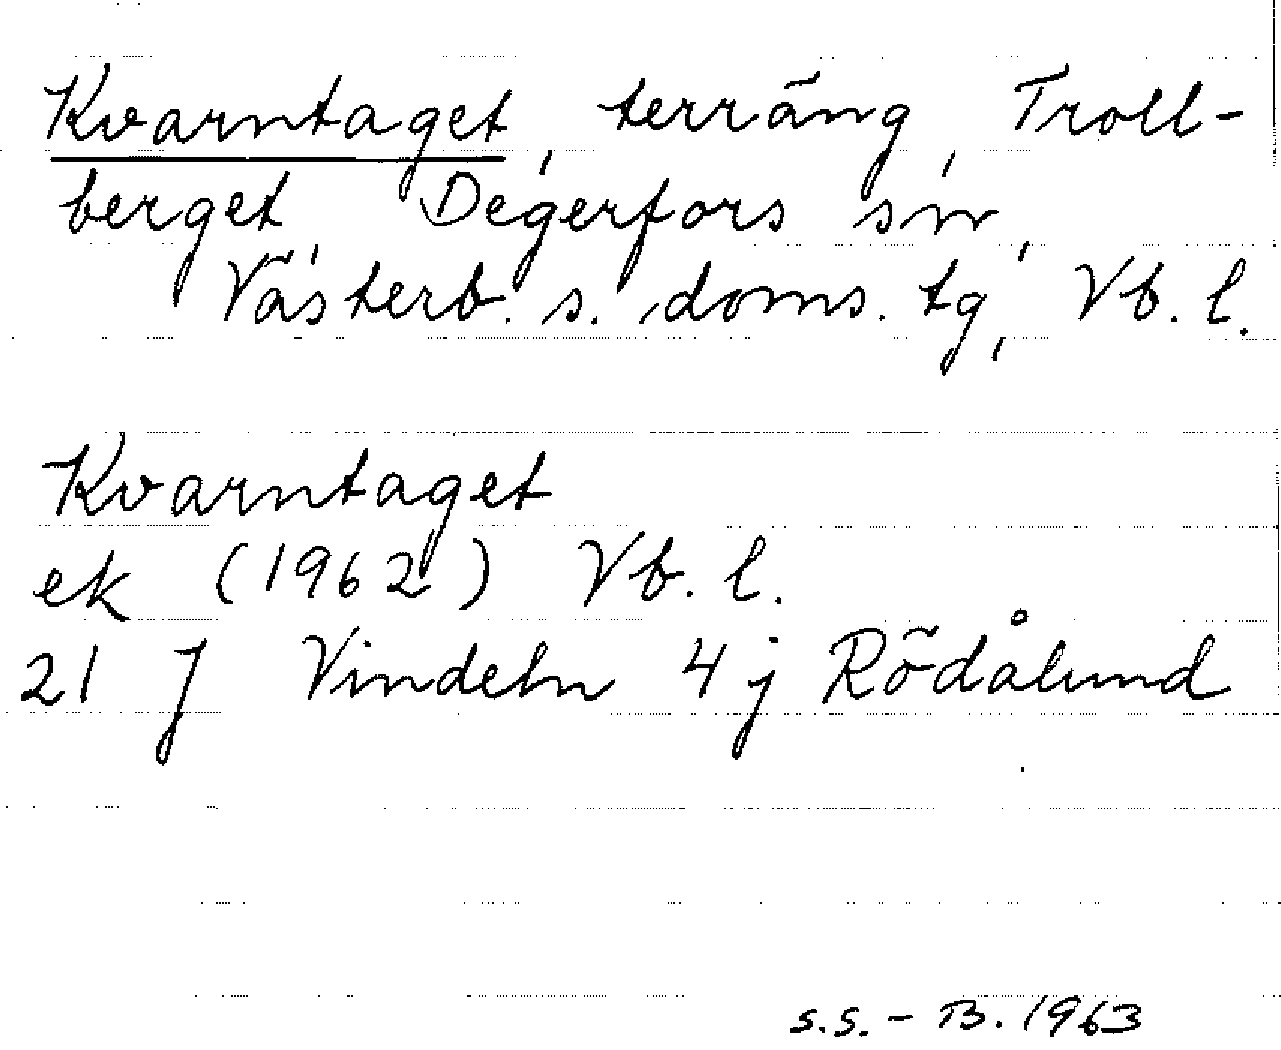 Kvarntaget, terräng, Troll-
berget Degerfors sn,
Västerb. s. doms. tg, Vb. l.
Kvarntaget
ek (1962) Vb. l.
21 J Vindeln 4 j Rödålund
s.s. - B. 1963